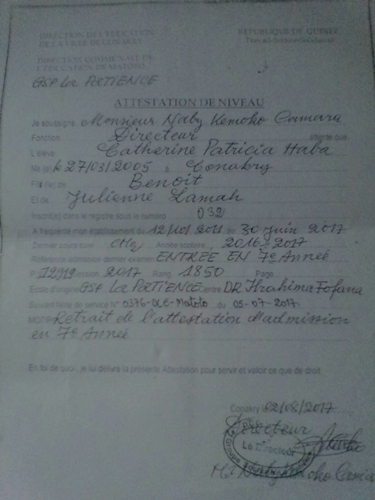 DIRECTION DE L'EDUCATION
DE LA VILLE DE CONAKRY
REPUBLIQUE DE GUINEE
Travail-Justice-Solidarité
DIRECTION COMMUNALE DE
L'EDUCATION DE MATOTO
GSP La PATIENCE
ATTESTATION DE NIVEAU
Je soussigné Monsieur Naby Kemoko Camara
Fonction Directeur atteste que
L'élève Catherine Patricia Haba
Né(e) le 27/03/2005 à Conakry
Fils (lle) de Benoit
Et de Julienne Lamah
Inscrit(e) dans le registre sous le numéro 032
A fréquenté mon établissement du 12/10/2011 au 30 juin 2017
Dernier cours suivi CM2 Année scolaire 2016-2017
Référence admission dernier examen ENTREE EN 7e Année
Session 2017 Rang 1350 Page
Ecole d'origine GSP La PATIENCE centre DR Ibrahima Fofana
Suivant Note de service N° 0376-DCE-Matoto du 05-07-2017
Motif Retrait de l'attestation d'admission
en 7e Année
En foi de quoi, je lui délivre la présente Attestation pour servir et valoir ce que de droit.
Conakry 02/08/2017
Directeur
Le Directeur
Mr Naby Kemoko Camara